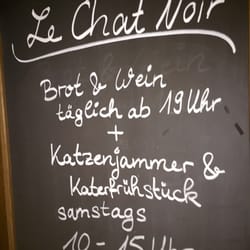 Le Chat Noir
Brot & Wein
täglich ab 19 Uhr
+
Katzenjammer &
Katerfrühstück
samstags
10 - 15 Uhr